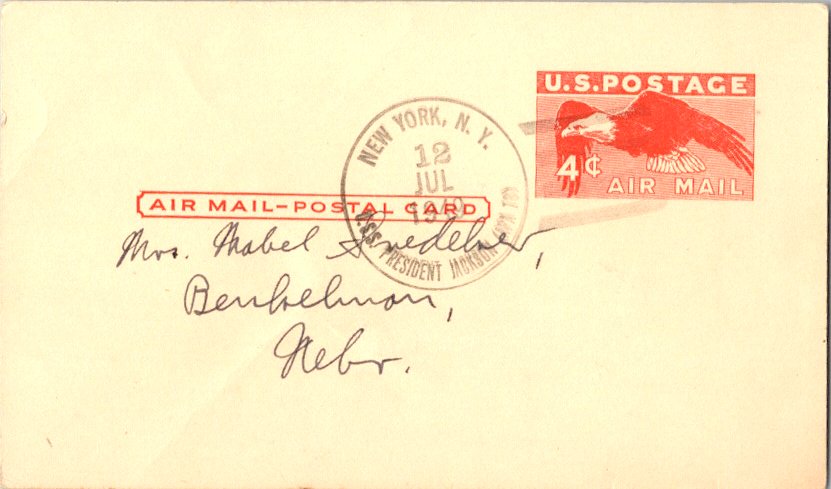 U.S. POSTAGE
4¢
AIR MAIL
NEW YORK, N. Y.
12
JUL
U.S.S. PRESIDENT JACKSON
AIR MAIL–POSTAL CARD
Mrs. Mabel
Benkelman,
Nebr.